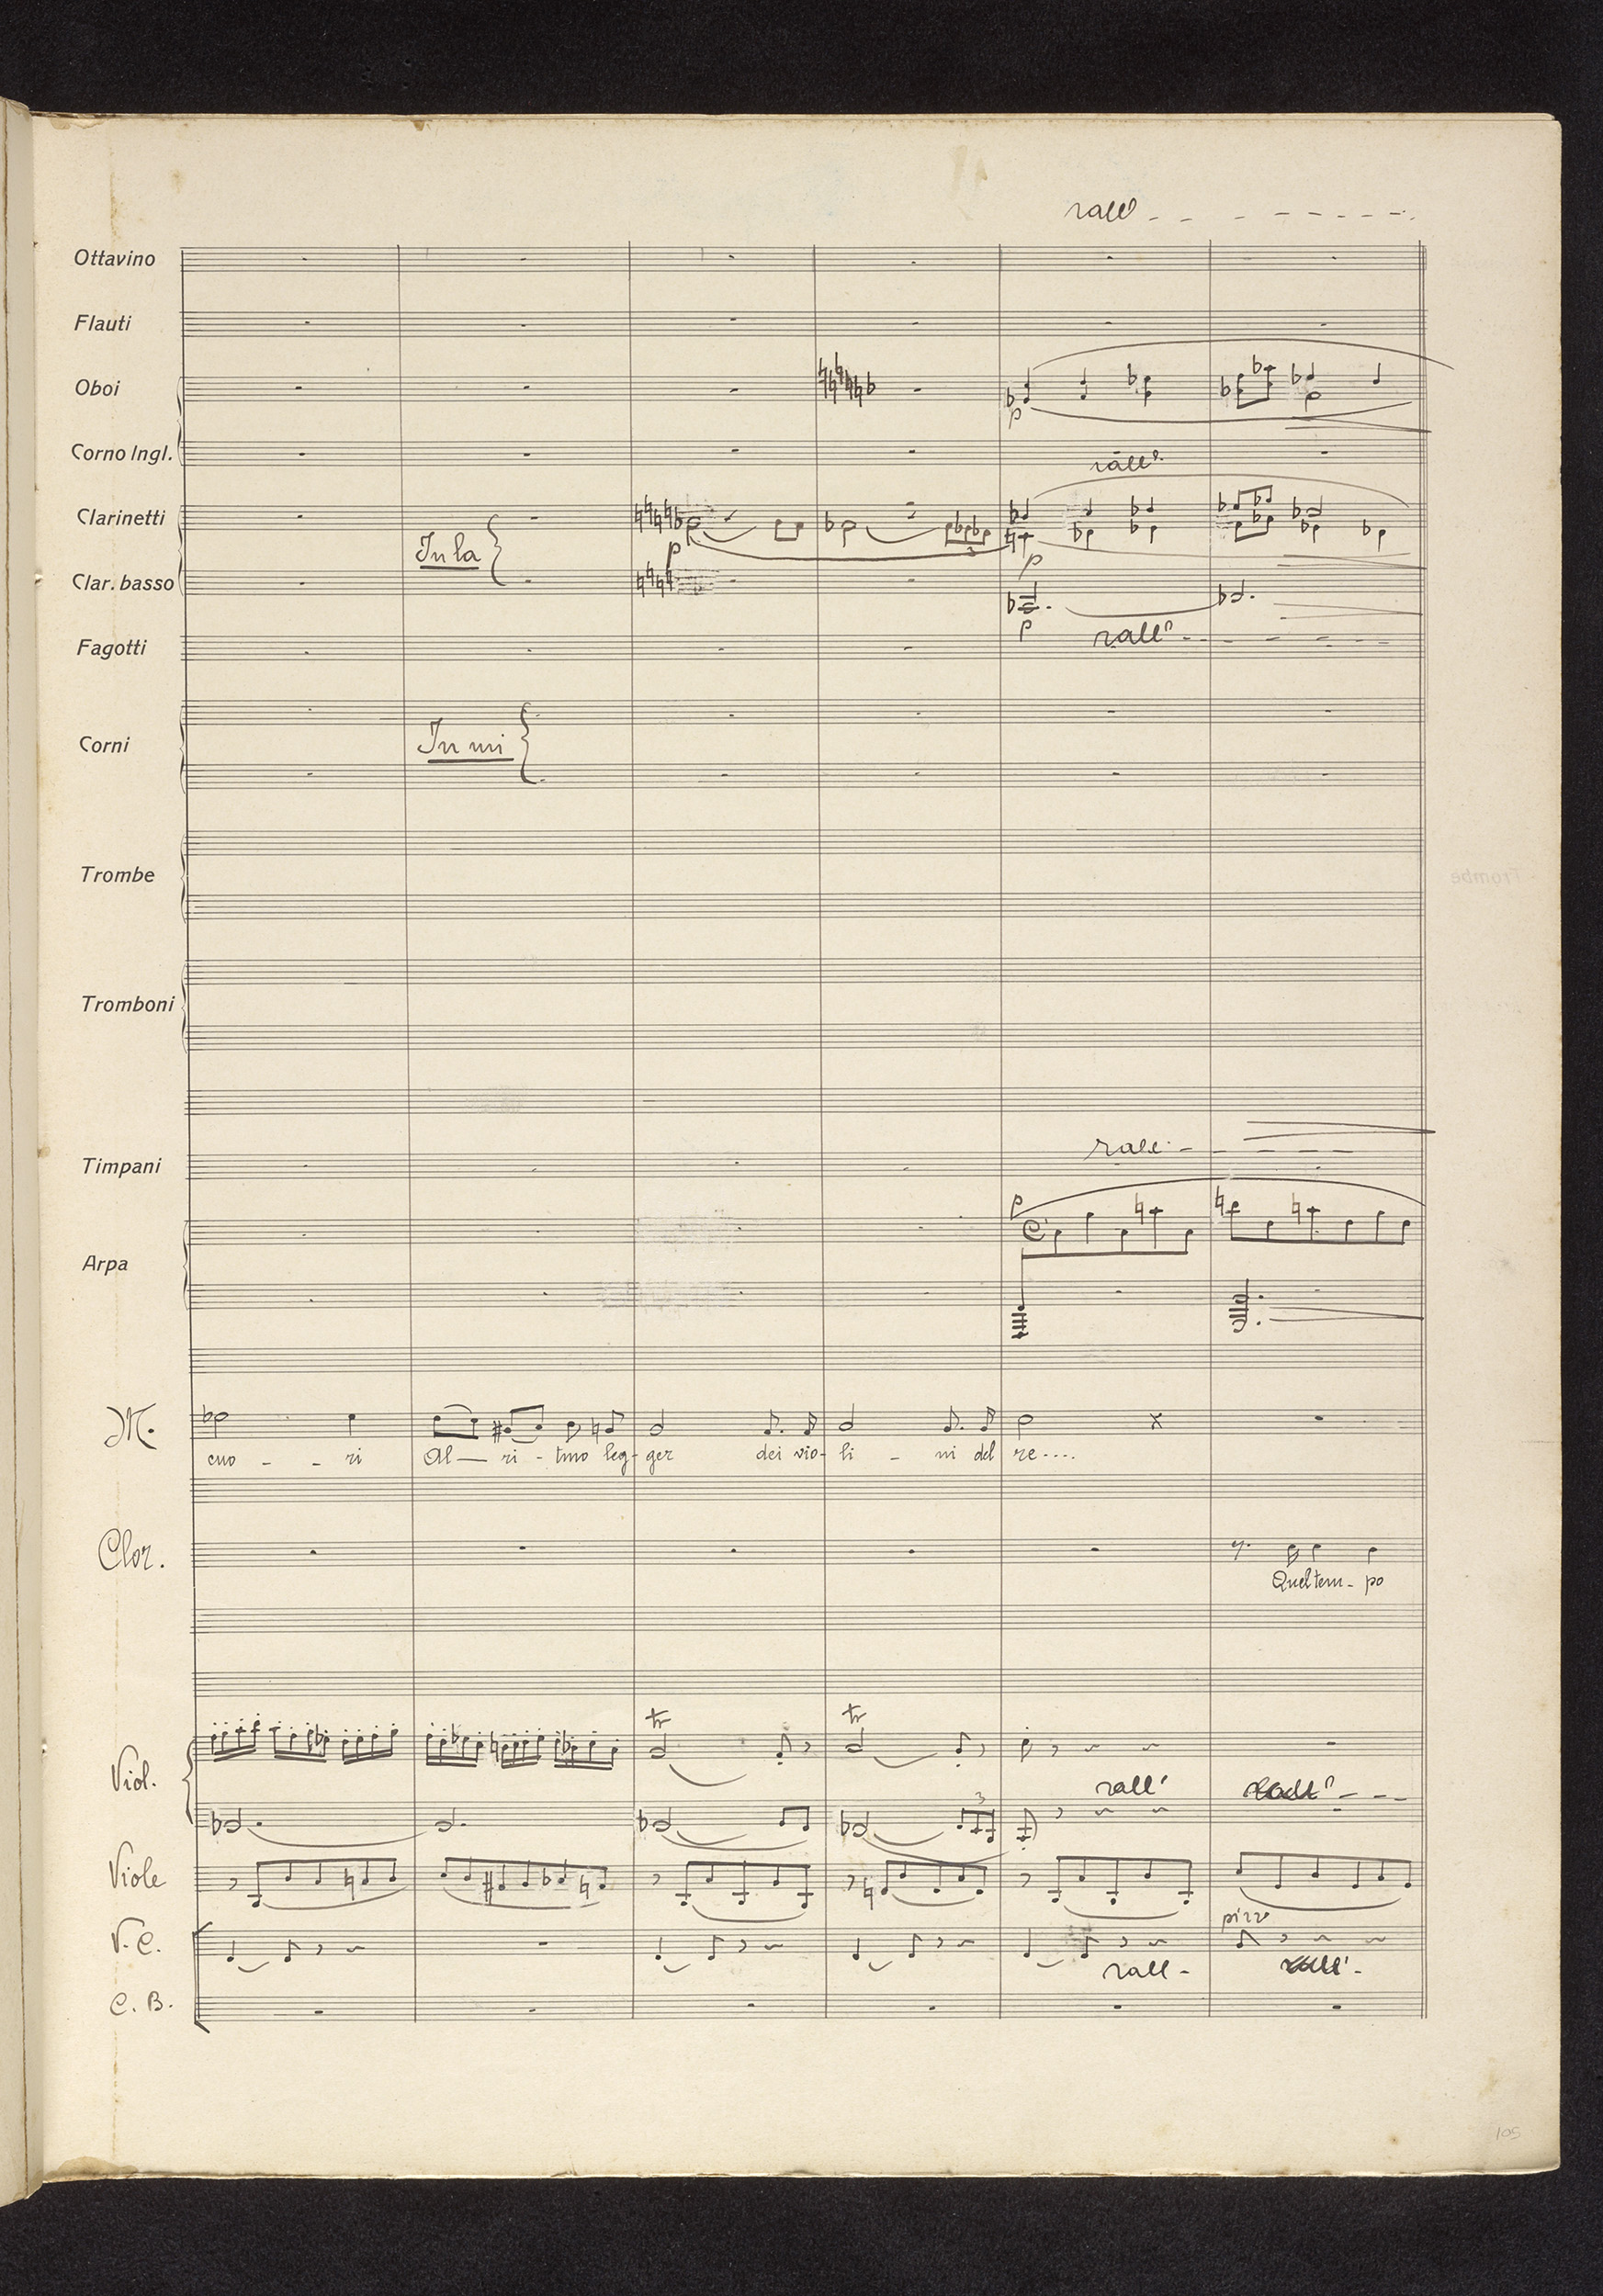 rall°
Ottavino
Flauti
Oboi
p
Corno Ingl.
rall°
Clarinetti
In la
p
3
p
Clar. basso
p
rall°
Fagotti
Corni
In mi
Trombe
Tromboni
rall.
Timpani
p
Arpa
M.
cuo - - ri Al— ri - tmo leg- ger dei vio- li - ni del re....
Clor.
Quel tem - po
tr tr
Viol.
rall°
3
Viole
pizz°
V. C.
rall -
C. B.
105